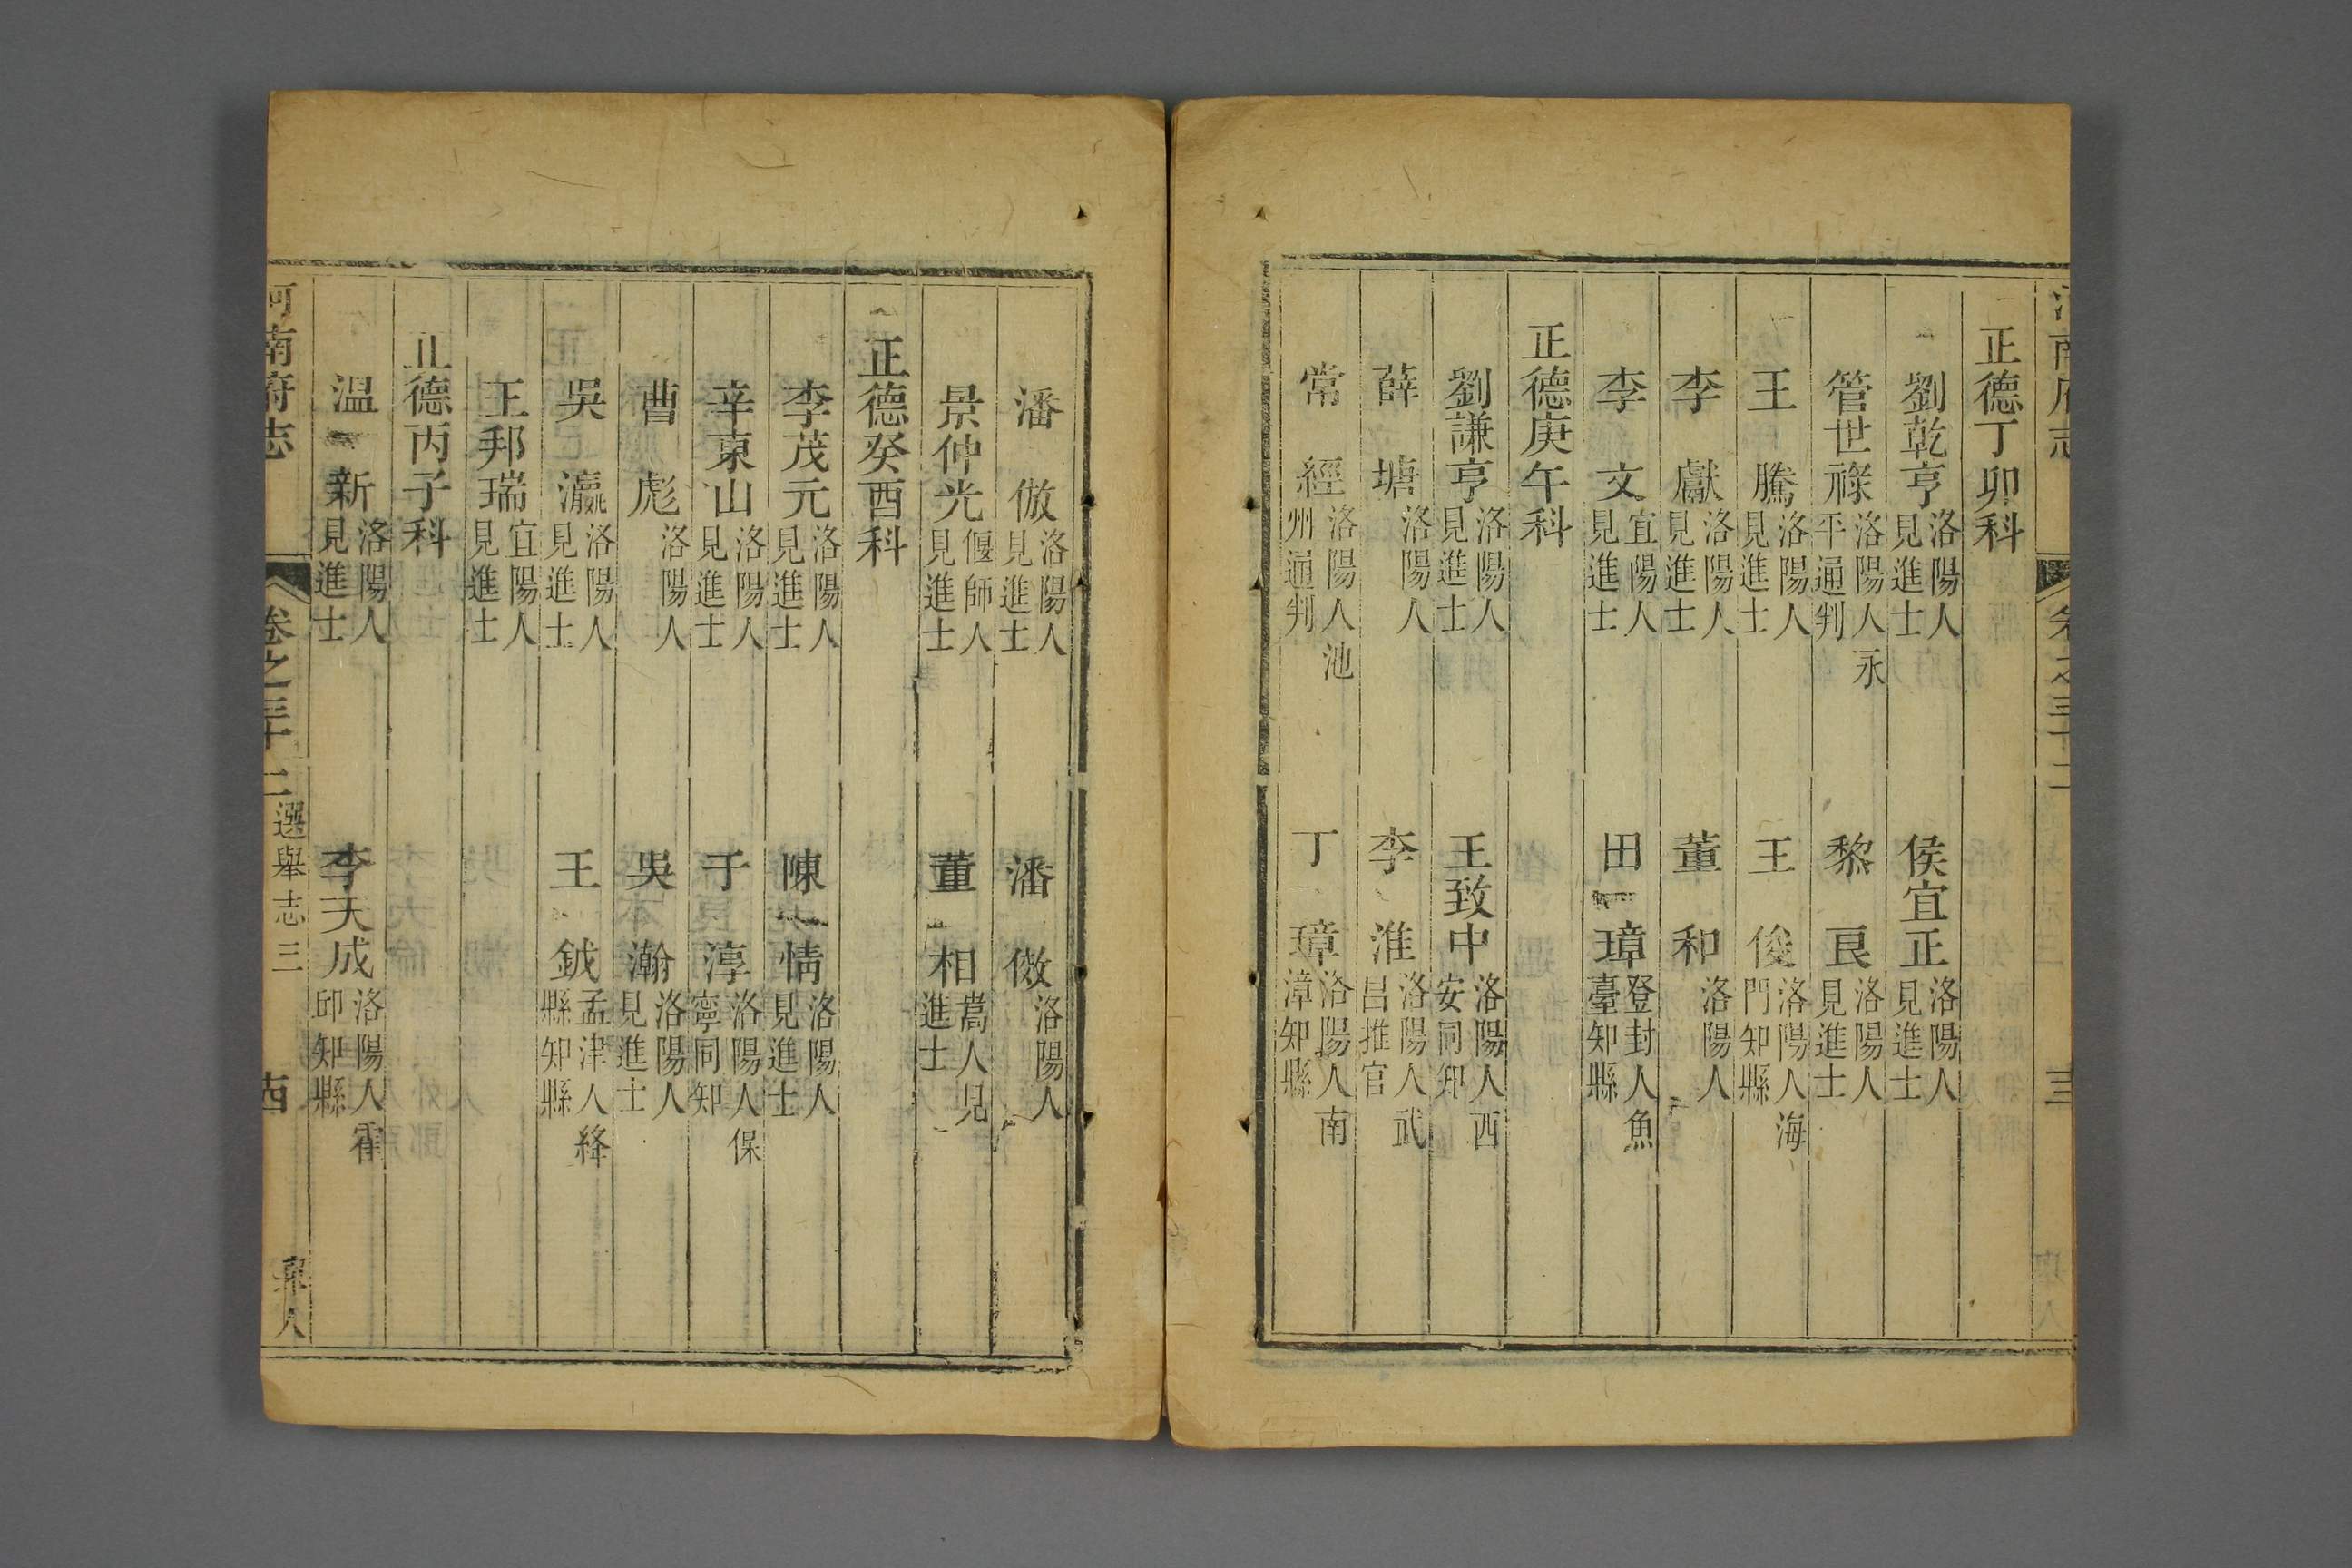 正德丁卯科
劉乾亨 洛陽人見進士 侯宜正 洛陽人見進士
管世祿 洛陽人永平通判 黎良 洛陽人見進士
王騰 洛陽人見進士 王俊 洛陽人海門知縣
李獻 洛陽人見進士 董和 洛陽人
李文 宜陽人見進士 田璋 登封人魚臺知縣
正德庚午科
劉謙亨 洛陽人見進士 王致中 洛陽人西安同知
薛塘 洛陽人 李淮 洛陽人武昌推官
常經 洛陽人池州通判 丁璋 洛陽人南漳知縣
潘倣 洛陽人見進士 潘傚 洛陽人
景仲光 偃師人見進士 董相 嵩人見進士
正德癸酉科
李茂元 洛陽人見進士 陳情 洛陽人見進士
辛東山 洛陽人見進士 于淳 洛陽人保寧同知
曹彪 洛陽人 吳瀚 洛陽人見進士
吳瀛 洛陽人見進士 王鉞 孟津人絳縣知縣
王邦瑞 宜陽人見進士
正德丙子科
温新 洛陽人見進士 李天成 洛陽人霍邱知縣
河南府志 卷之三十二 選舉志三 舉人